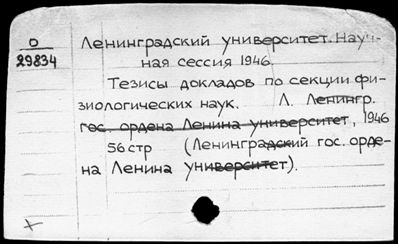 О
29834
Ленинградский университет. Науч-
ная сессия 1946.
Тезисы докладов по секции фи-
зиологических наук. Л. Ленингр.
гос. ордена Ленина университет, 1946
56 стр (Ленинградский гос. орде-
на Ленина университет).